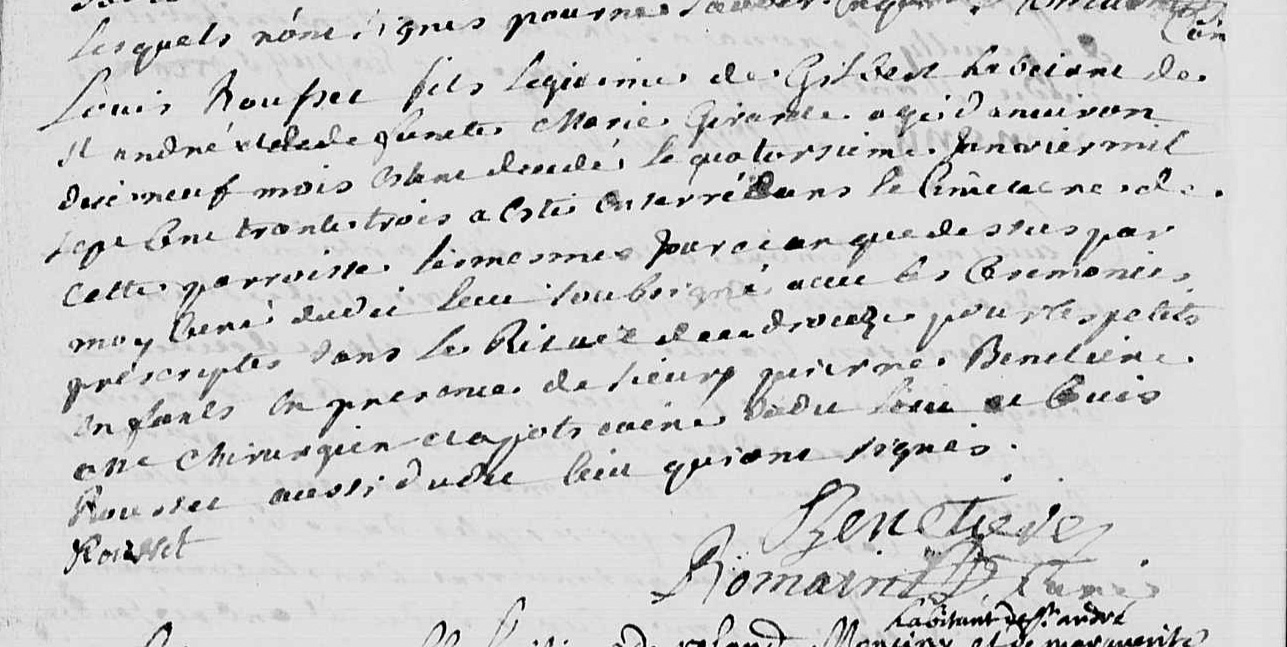 lesquels n'ont signés pour ne
Louis Rousset fils legitime de Gilbert habitant de
St andré et de de functe Marie Girarde agé d'environ
dix neuf mois estant decedé le quatorsieme Janvier mil
sept cent trante trois a esté enterré dans le Cimetiere de
cette parroisse le mesme Jour et an que dessus par
moy Curé dudit lieu soubsigné avec les Ceremonies
prescriptes dans le Rituel pour les petits
enfants en presence de sieurs Benetiere
chirurgien dudit lieu et Louis
Rousset aussi dudit lieu qui ont signés.
Benetiere
Rousset
Romain Curé
habitant de St andré
et de marguerite